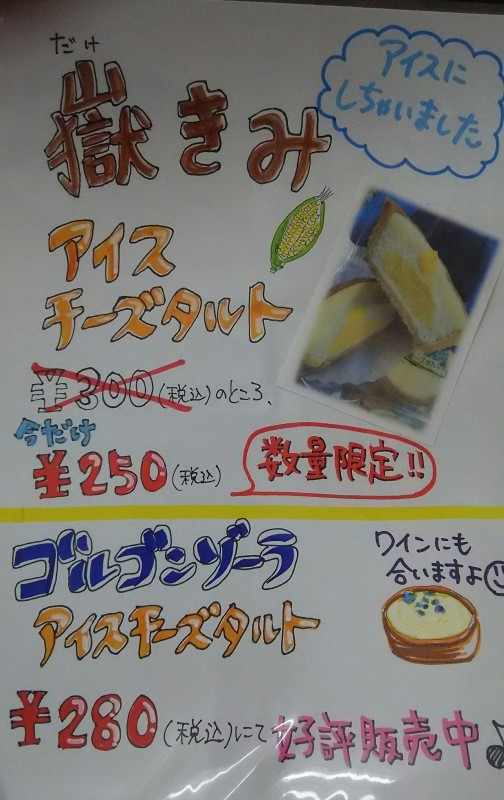 だけ
嶽きみ
アイスに
しちゃいました
アイス
チーズタルト
¥300(税込)のところ、
今だけ
¥250(税込)
数量限定!!
ゴルゴンゾーラ
アイスチーズタルト
ワインにも
合いますよ
¥280(税込)にて好評販売中♪